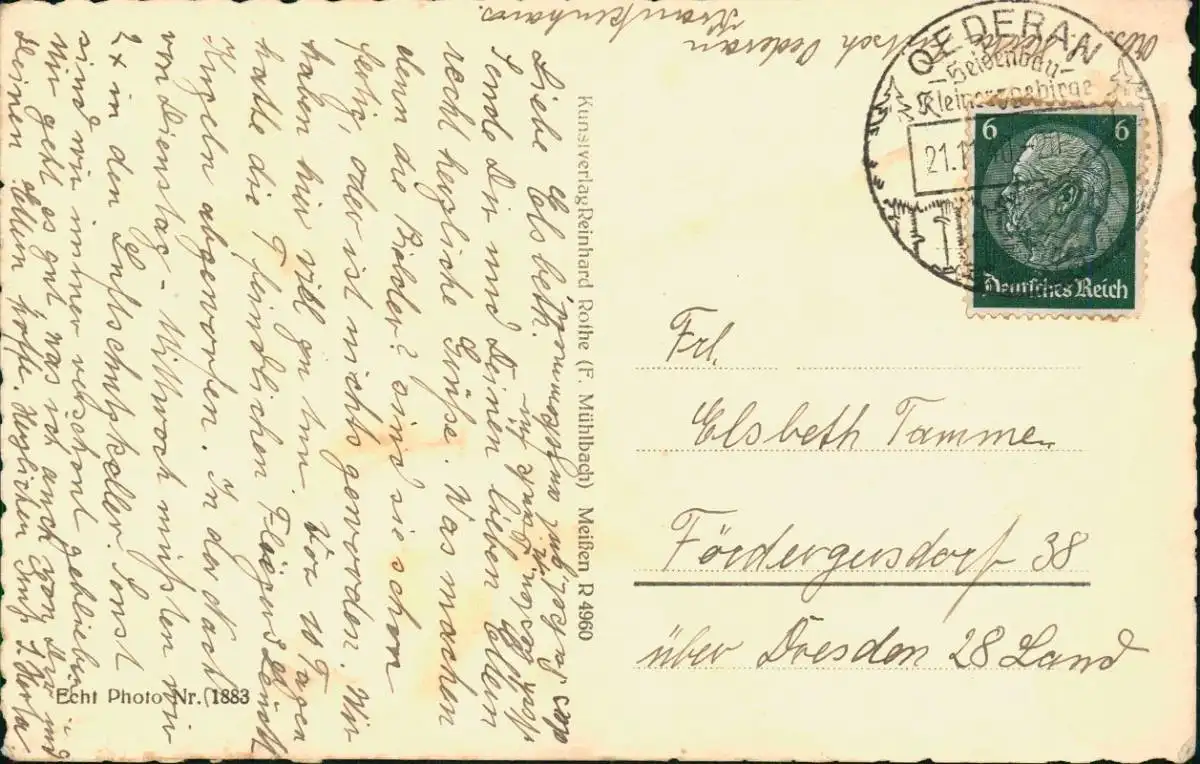 Abs. Oederan
Krankenhaus.
OEDERAN
Seidenbau-
Kleinerzgebirge
21.11.40-20
6 6
Deutsches Reich
Frl.
Elsbeth Tamme.
Fördergersdorf 38
über Dresden 28 Land
Kunstverlag Reinhard Rothe (F. Mühlbach) Meißen R 4960
Liebe Elsbeth.
Sende Dir und Deinen lieben Eltern
recht herzliche Grüße. Was machen
denn die Bilder? sind sie schon
fertig, oder ist nichts geworden. Wir
haben hier viel zu tun. Vor 10 Tagen
hatte die feindlichen Flieger Leucht
Kugeln abgeworfen. In der Nacht
von Dienstag-Mittwoch mußten wir
2x in den Luftschutzkeller. Sonst
sind wir immer verschont geblieben
Mir geht es gut was ich auch von Dir und
Deinen Eltern hoffe. Herzlichen Gruß Herta.
Echt Photo Nr. (1883